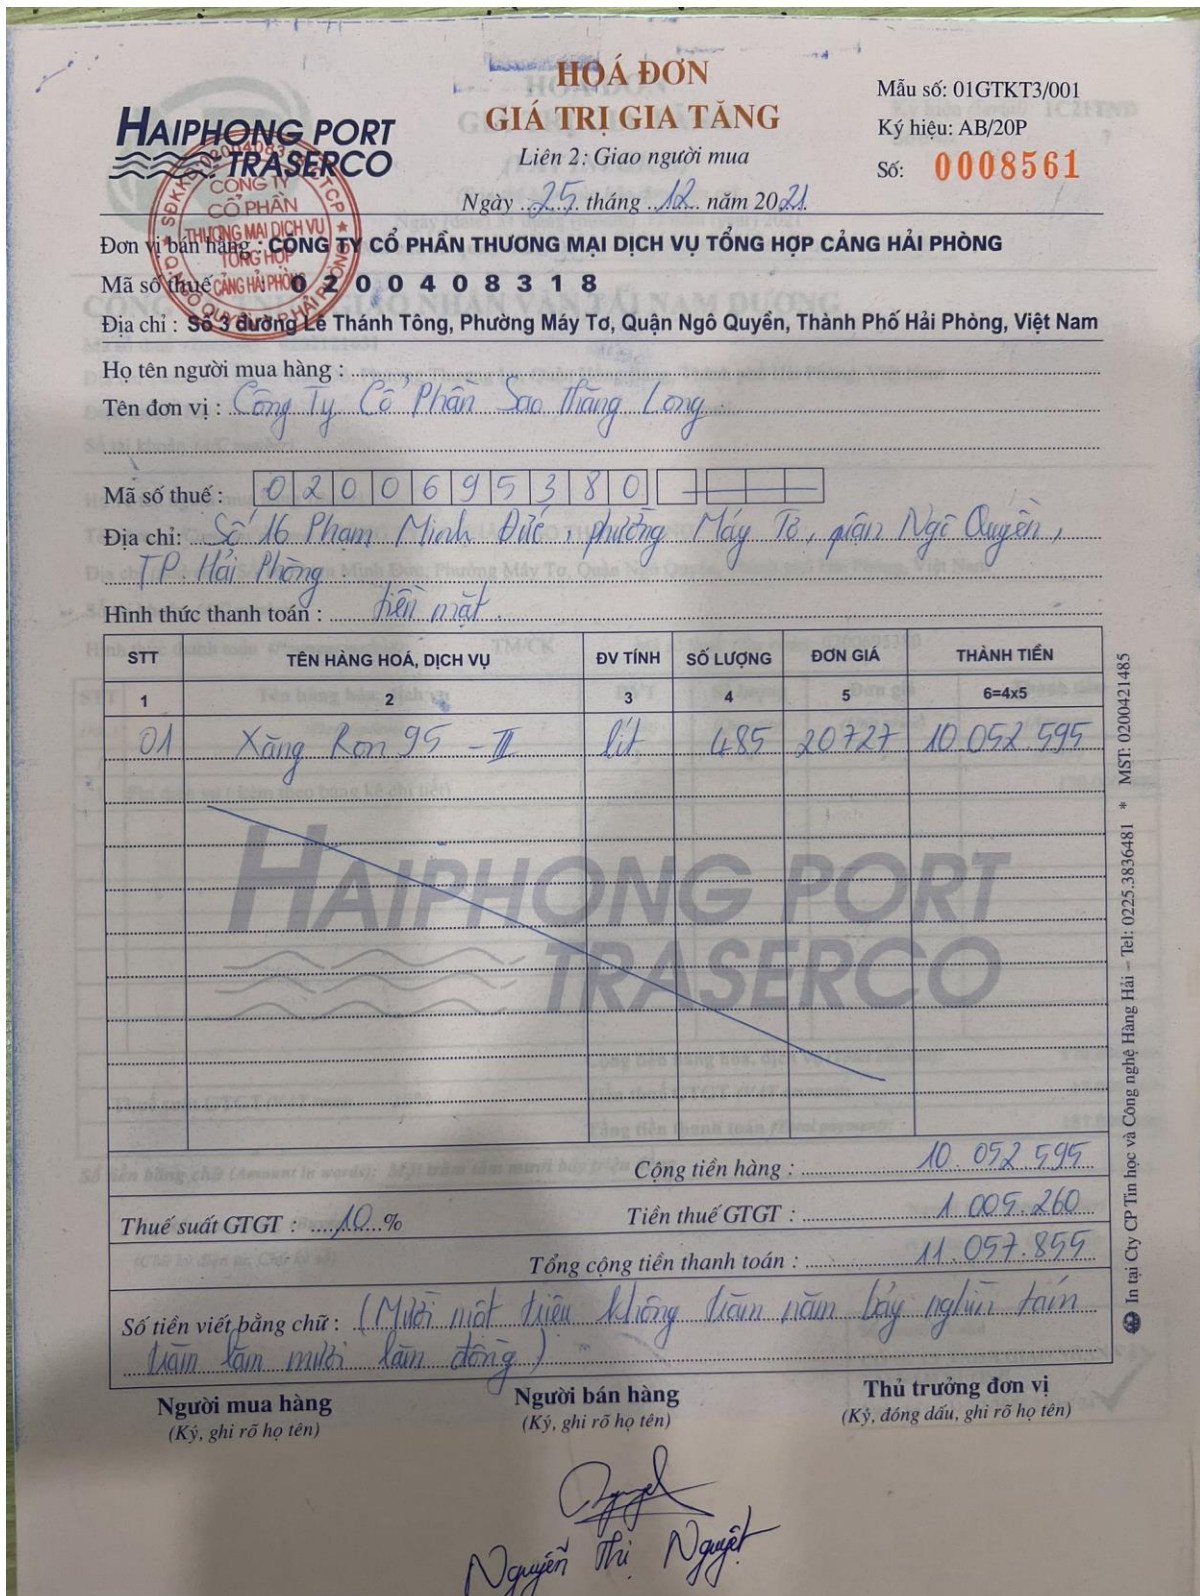 HOÁ ĐƠN
GIÁ TRỊ GIA TĂNG
Liên 2: Giao người mua
Ngày 25 tháng 12 năm 2021
Mẫu số: 01GTKT3/001
Ký hiệu: AB/20P
Số: 0008561
HAIPHONG PORT
TRASERCO
CÔNG TY
CỔ PHẦN
THƯƠNG MẠI DỊCH VỤ
TỔNG HỢP
CẢNG HẢI PHÒNG
Đơn vị bán hàng : CÔNG TY CỔ PHẦN THƯƠNG MẠI DỊCH VỤ TỔNG HỢP CẢNG HẢI PHÒNG
Mã số thuế : 0200408318
Địa chỉ : Số 3 đường Lê Thánh Tông, Phường Máy Tơ, Quận Ngô Quyền, Thành Phố Hải Phòng, Việt Nam
Họ tên người mua hàng :
Tên đơn vị : Công Ty Cổ Phần Sao Thăng Long
Mã số thuế : 0200695380
Địa chỉ: Số 16 Phạm Minh Đức, phường Máy Tơ, quận Ngô Quyền,
TP. Hải Phòng.
Hình thức thanh toán : tiền mặt.
STT TÊN HÀNG HOÁ, DỊCH VỤ ĐV TÍNH SỐ LƯỢNG ĐƠN GIÁ THÀNH TIỀN
1 2 3 4 5 6=4x5
01 Xăng Ron 95 - III lít 485 20727 10.052.595
HAIPHONG PORT
TRASERCO
Cộng tiền hàng : 10.052.595
Thuế suất GTGT : 10 % Tiền thuế GTGT : 1.005.260
Tổng cộng tiền thanh toán : 11.057.855
Số tiền viết bằng chữ : (Mười một triệu không trăm năm bảy nghìn tám
trăm năm mươi lăm đồng)
Người mua hàng
(Ký, ghi rõ họ tên)
Người bán hàng
(Ký, ghi rõ họ tên)
Thủ trưởng đơn vị
(Ký, đóng dấu, ghi rõ họ tên)
Nguyễn Thị Nguyệt
In tại Cty CP Tin học và Công nghệ Hàng Hải – Tel: 0225.3836481 * MST: 0200421485